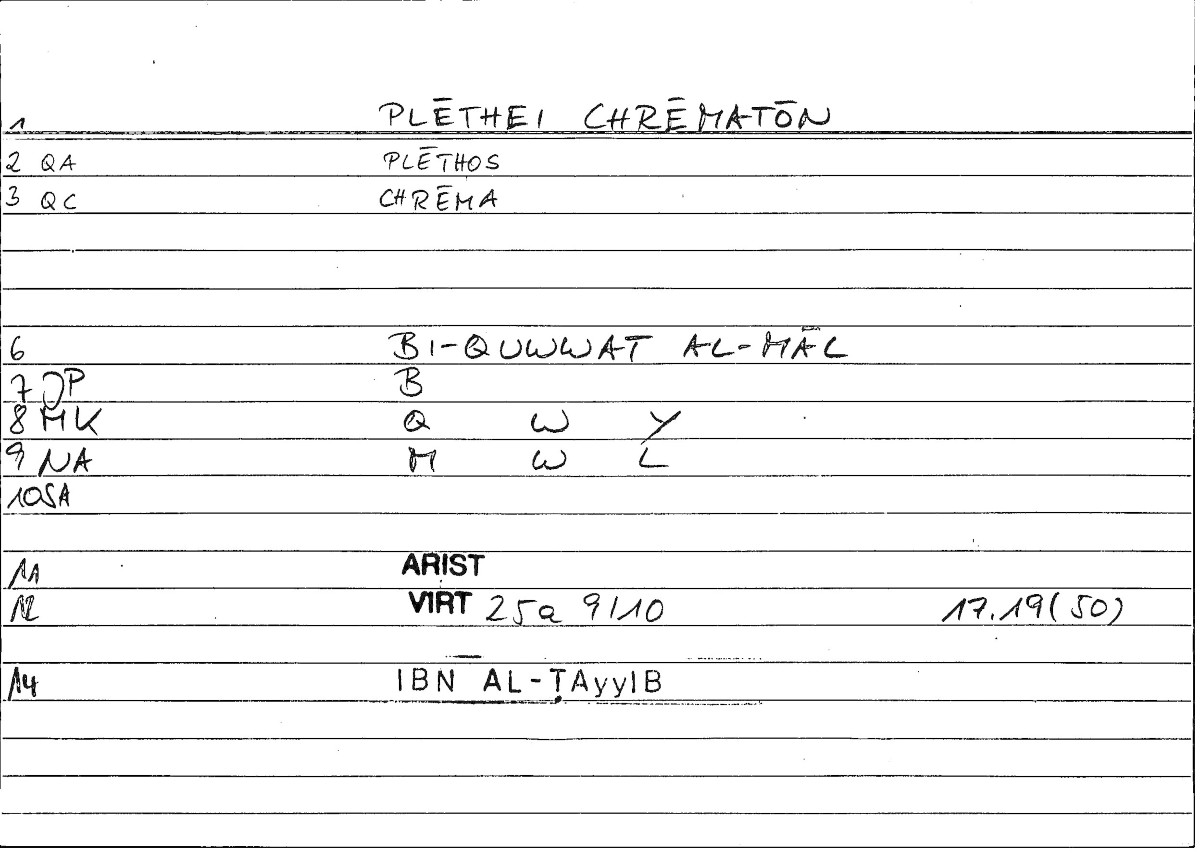 1 PLĒTHEI CHRĒMATŌN
2 QA PLĒTHOS
3 QC CHRĒMA
6 BI-QUWWAT AL-MĀL
7 JP B
8 MK Q W Y
9 NA M W L
10 SA
11 ARIST
12 VIRT 25a 9/10 17.19(50)
14 IBN AL-ṬAyyIB